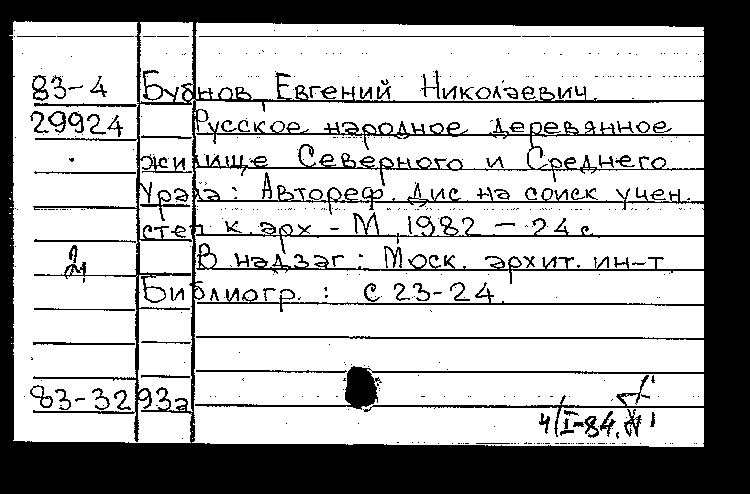 83-4 Бубнов, Евгений Николаевич.
29924 Русское народное деревянное
жилище Северного и Среднего
Урала: Автореф. дис на соиск учен.
степ к. арх - М, 1982 - 24 с
В надзаг: Моск. архит. ин-т
Библиогр. : с 23-24.
83-3293а
4/I-84.